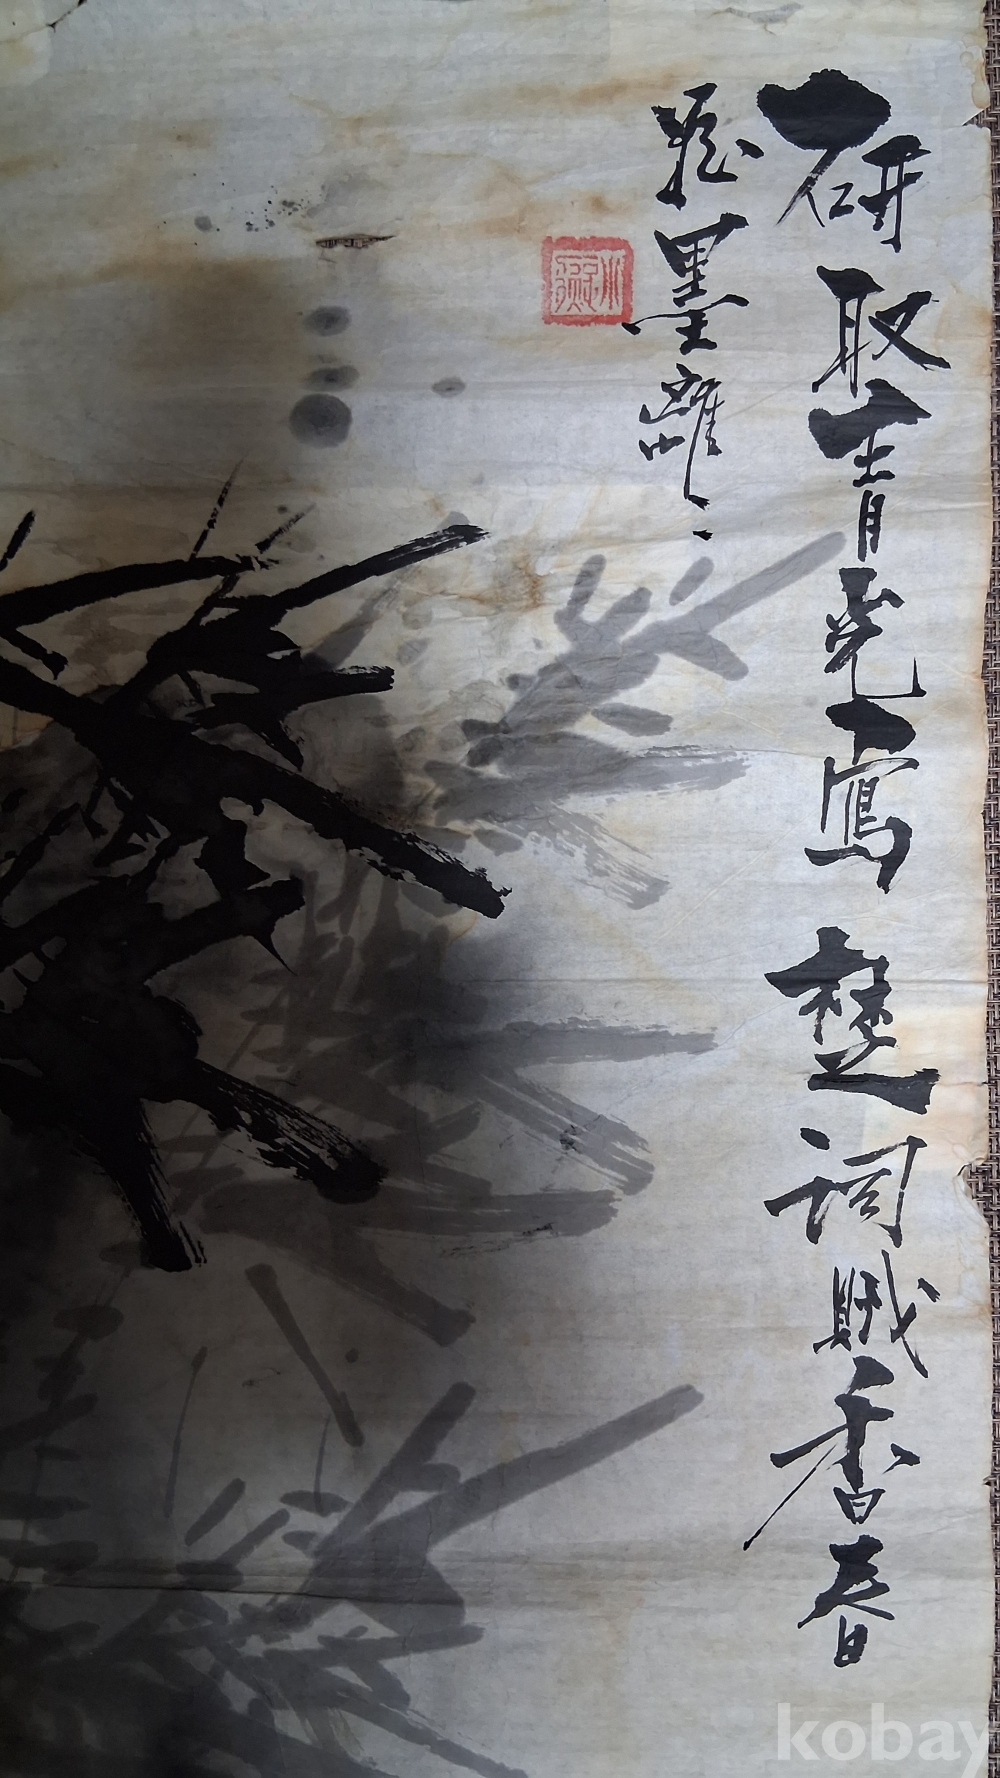 研取青光寫楚詞膩香春
墨離〻
kobay